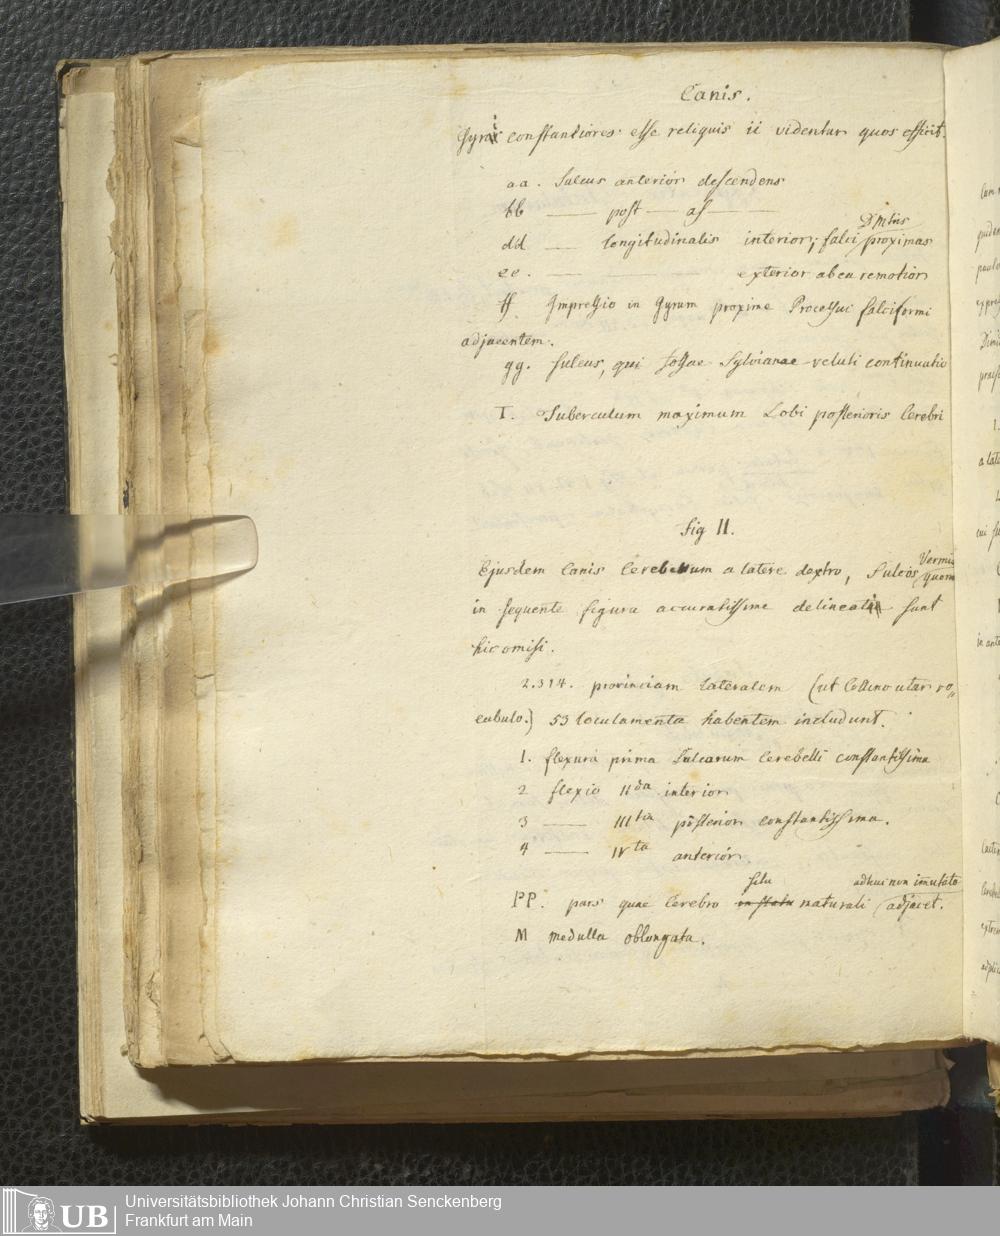 Canis.
Gyri constantiores esse reliquis ii videntur quos efficit.
aa. Sulcus anterior descendens
bb — post — as —
dd — longitudinalis interior; falci proximas
ee. — — exterior ab ea remotior
ff. Impressio in Gyrum proxime Processui falciformi
adjacentem.
gg. Sulcus, qui fossae Sylvianae veluti continuatio
T. Tuberculum maximum Lobi posterioris Cerebri
Fig II.
Vermis
Ejusdem Canis Cerebellum a latere dextro, Sulcos quem
in sequente figura accuratissime delineati sunt
hic omisi.
2.3 1 4. provinciam lateralem (ut Collino utar vo„
cabulo.) 53 loculamenta habentem includunt.
1. flexura prima Sulcarum Cerebelli constantissima
2 flexio IIda interior
3 — IIItia posterior constantissima.
4 — IVta anterior
situ adhuc non immutato
PP. pars quae Cerebro in statu naturali adjacet.
M medulla oblongata.
UB
Universitätsbibliothek Johann Christian Senckenberg
Frankfurt am Main